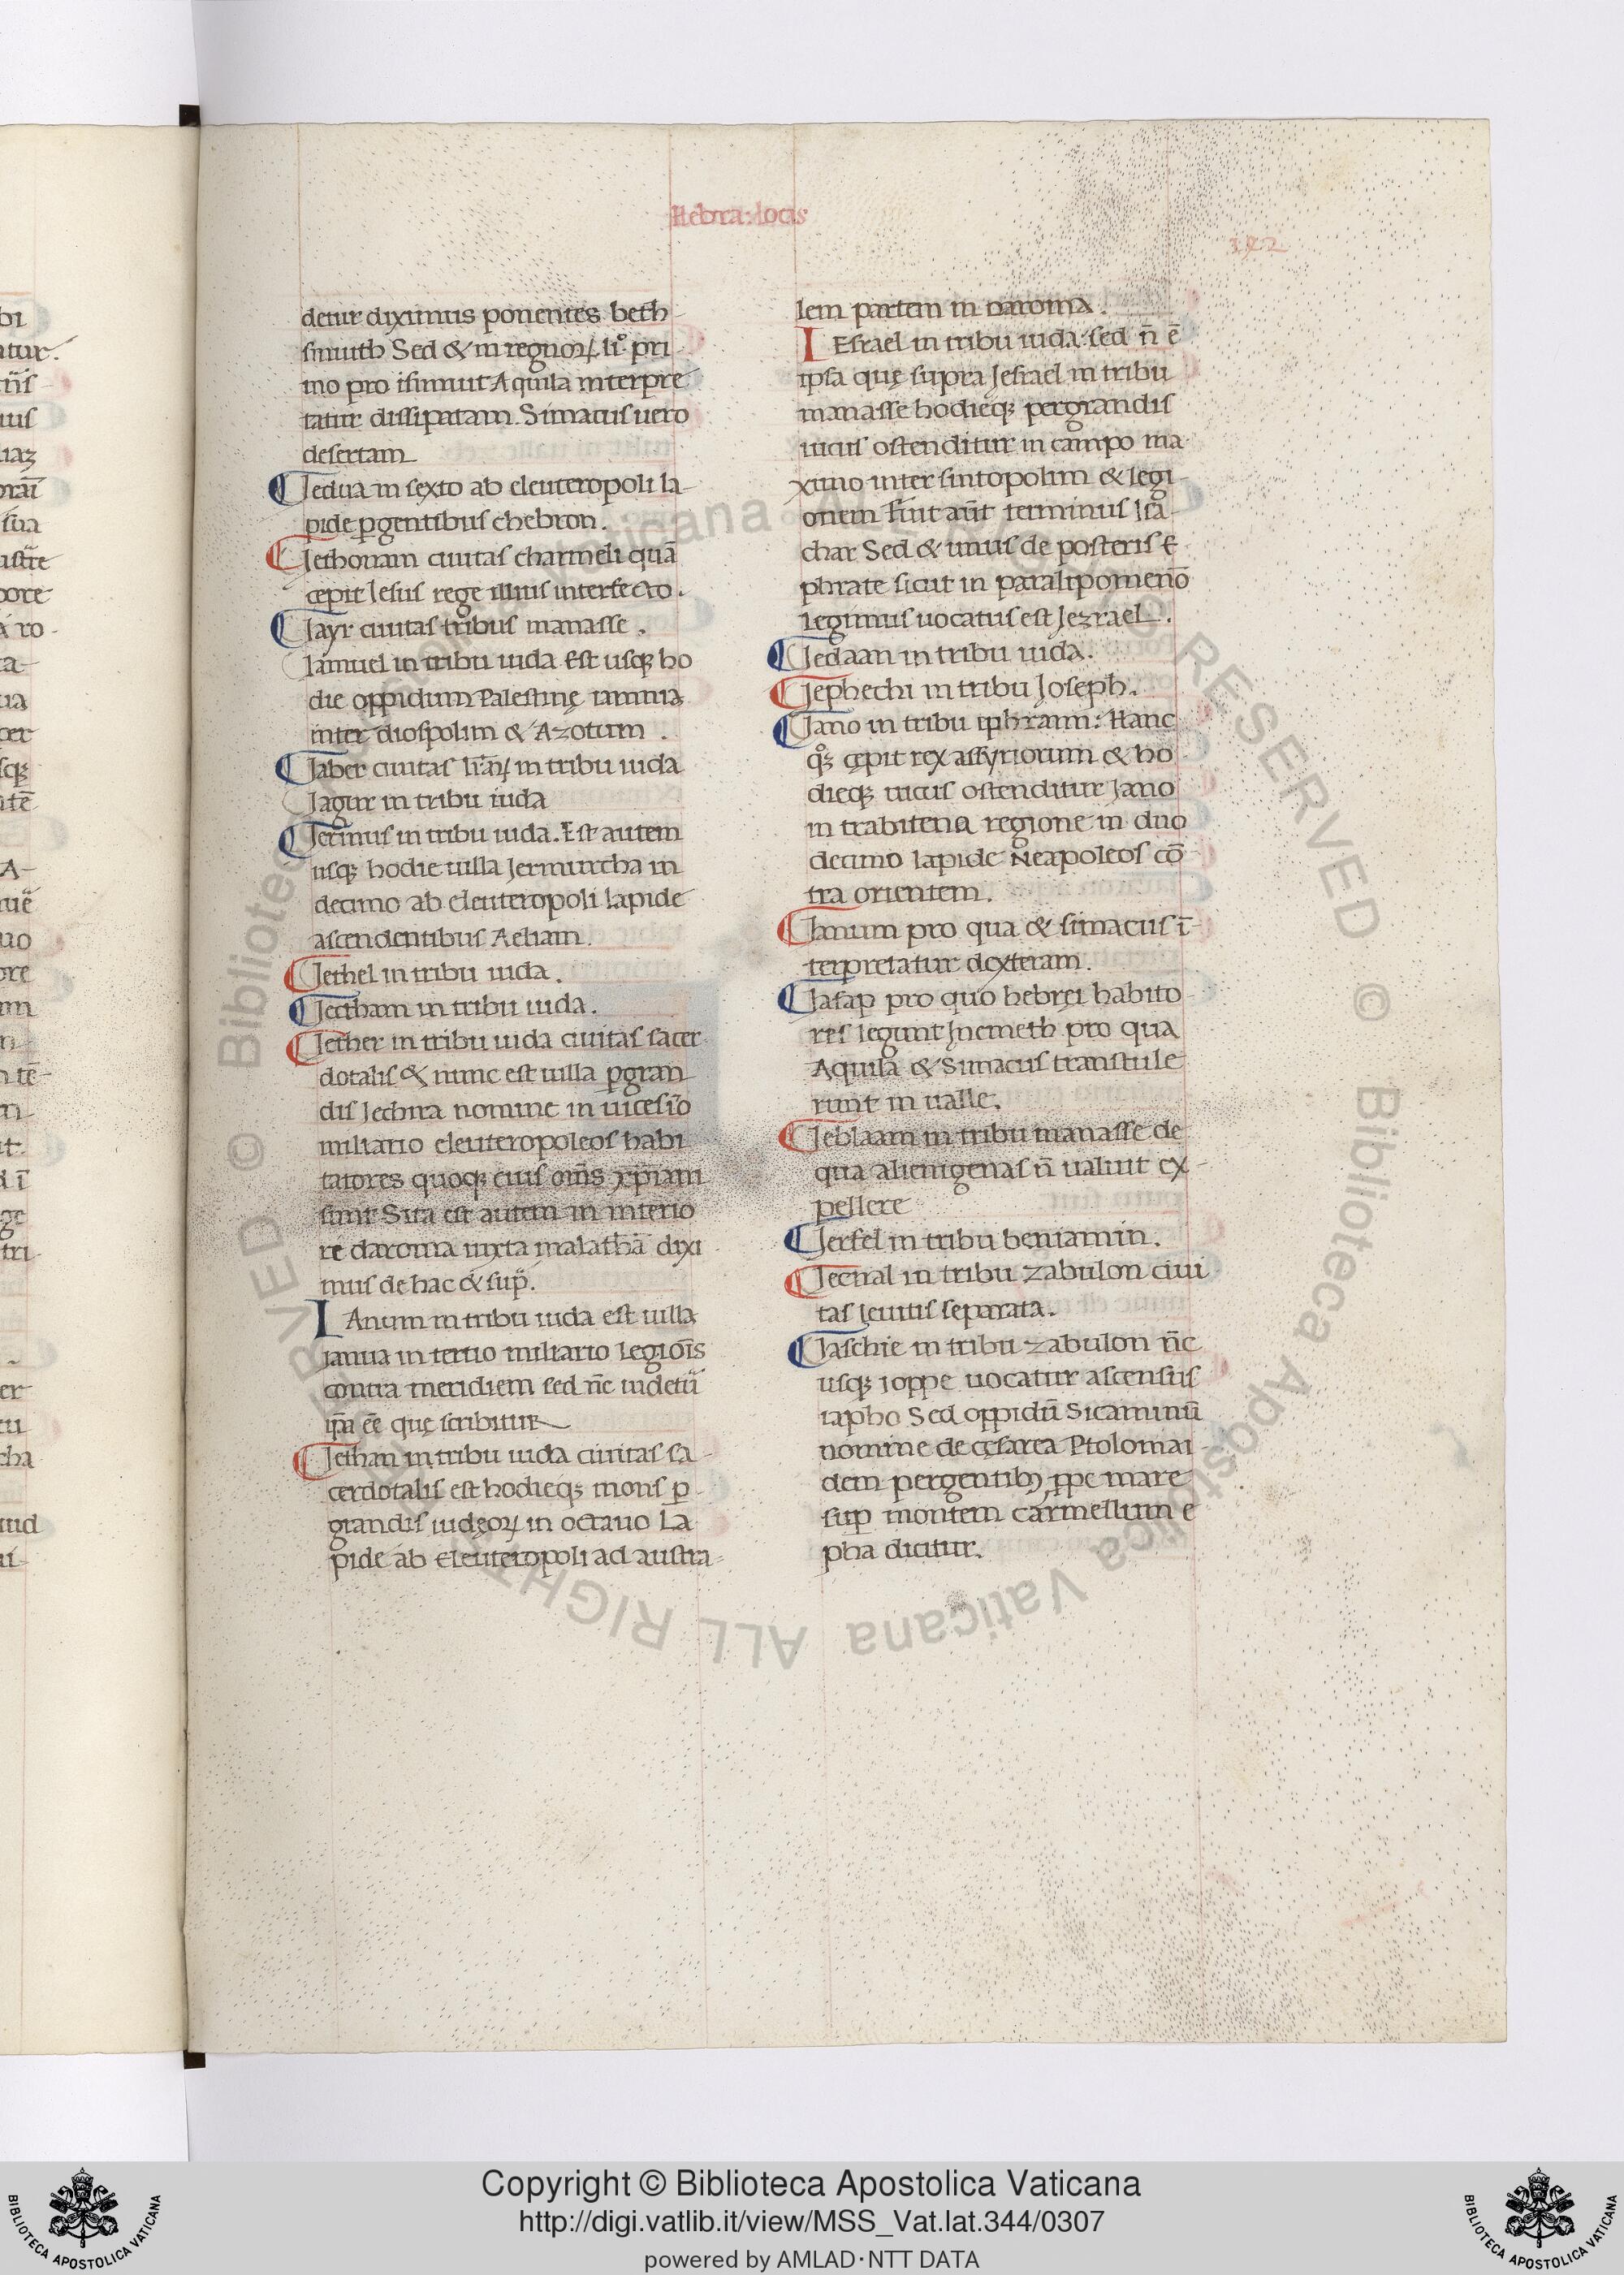 Hebra: locis
192
detur diximus ponentes beth-
smuth Sed & in regnoꝝ liº pri-
mo pro isimut Aquila interpre
tatur dissipatam. Simacus uero
desertam
Jedua in sexto ab eleuteropoli la-
pide ꝑgentibus chebron.
Jethonam ciuitas charmeli quā
cepit Iesus rege illius interfecto.
Jayr ciuitas tribus manasse.
Jamuel in tribu iuda Est usqꝫ ho
die oppidum Palestinę iamnia
inter diospolim & Azotum.
Jaber ciuitas lr̄aꝝ in tribu iuda
Jagur in tribu iuda
Jerimus in tribu iuda. Est autem
usqꝫ hodie uilla Jermuicha in
decimo ab eleuteropoli lapide
ascendentibus Aeliam.
Jethel in tribu iuda.
Jectham in tribu iuda.
Jether in tribu iuda ciuitas sacer
dotalis & nunc est uilla ꝑgran
dis Jethira nomine in uicesīo
miliario eleuteropoleos habi
tatores quoqꝫ eius om̄s xp̄iani
sunt Sita est autem in interio
re daroma iuxta malathā dixi
mus de hac & sup̄.
IAnum in tribu iuda est uilla
ianua in tertio miliario legiōīs
contra meridiem sed n̄c uidetū
ip̄a ēē quę scribitur
Jethan in tribu iuda ciuitas sa-
cerdotalis est hodieqꝫ mons ꝑ-
grandis iudęoꝝ in octauo La
pide ab Eleuteropoli ad austra-
lem partem in Daroma.
IEsrael in tribu iuda. sed n̄ ē
ipsa quę supra Jesrael in tribu
manasse hodieqꝫ pergrandis
uicus ostenditur in campo ma
ximo inter sintopolim & legi-
onem Fuit aūt terminus Isa-
char Sed & unus de posteris E
phrate sicut in paralipomenō
legimus uocatus est Jezrael.
Jedaan in tribu iuda.
Jephechi in tribu Joseph.
Jano in tribu iphraim: Hanc
qºꝫ cępit rex assyriorum & ho
dieqꝫ uicus ostenditur Jano
in trabitena regione in duo
decimo lapide Neapoleos cō
tra orientem.
Janum pro qua & simacus ī-
terpretatur dexteram.
Jafap pro quo hebręi habito
res legunt Jnemeth pro qua
Aquila & Simacus transtule
runt in ualle.
Jeblaam in tribu manasse de
qua alienigenas n̄ ualuit ex-
pellere
Jerfel in tribu beniamin.
Jecnal in tribu zabulon ciui
tas leuitis separata.
Jaschie in tribu zabulon n̄c
usqꝫ ioppe uocatur ascensus
iapho Sed oppidū Sicaminū
nomine de cęsarea Ptolomai-
dem pergentibꝫ ꝓpe mare
sup montem carmellum e
pha dicitur.
© Biblioteca Apostolica Vaticana ALL RIGHTS RESERVED © Biblioteca Apostolica Vaticana ALL RIGHTS RESERVED
Copyright © Biblioteca Apostolica Vaticana
http://digi.vatlib.it/view/MSS_Vat.lat.344/0307
powered by AMLAD·NTT DATA
BIBLIOTECA APOSTOLICA VATICANA
BIBLIOTECA APOSTOLICA VATICANA